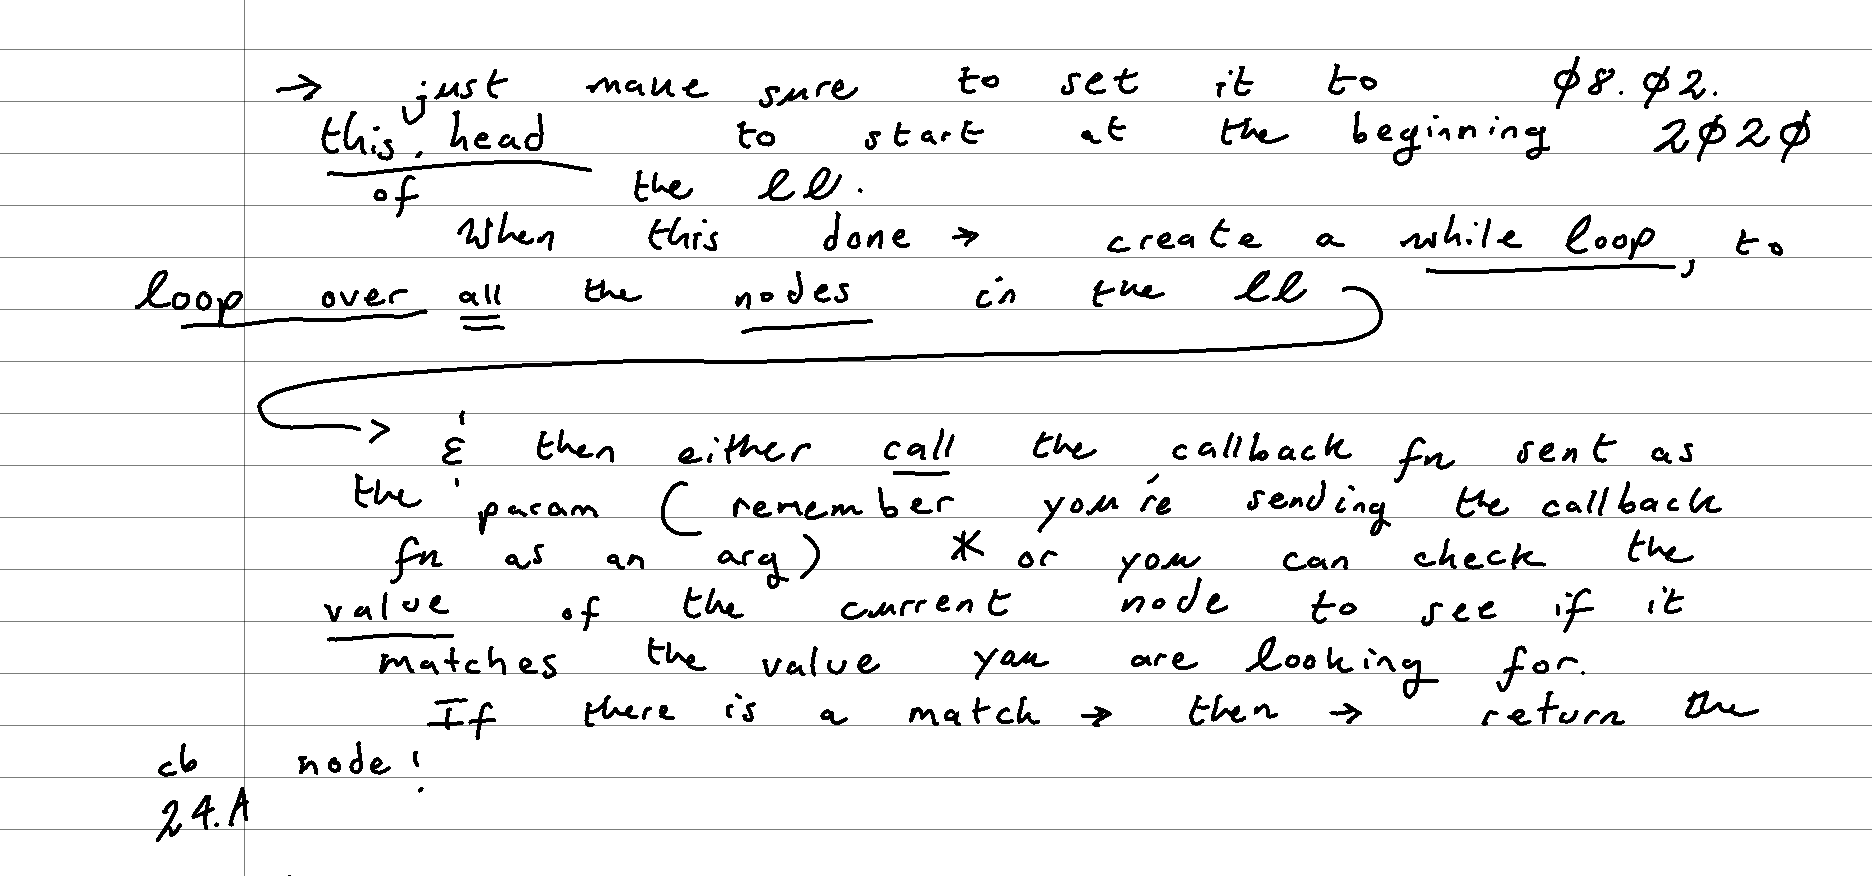 → just make sure to set it to ø8.ø2.
this.head to start at the beginning 2ø2ø
of the ll.
When this done → create a while loop, to
loop over all the nodes in the ll
→ & then either call the callback fn sent as
the param (remember you're sending the callback
fn as an arg) * or you can check the
value of the current node to see if it
matches the value you are looking for.
If there is a match → then → return the
cb node!
24.A